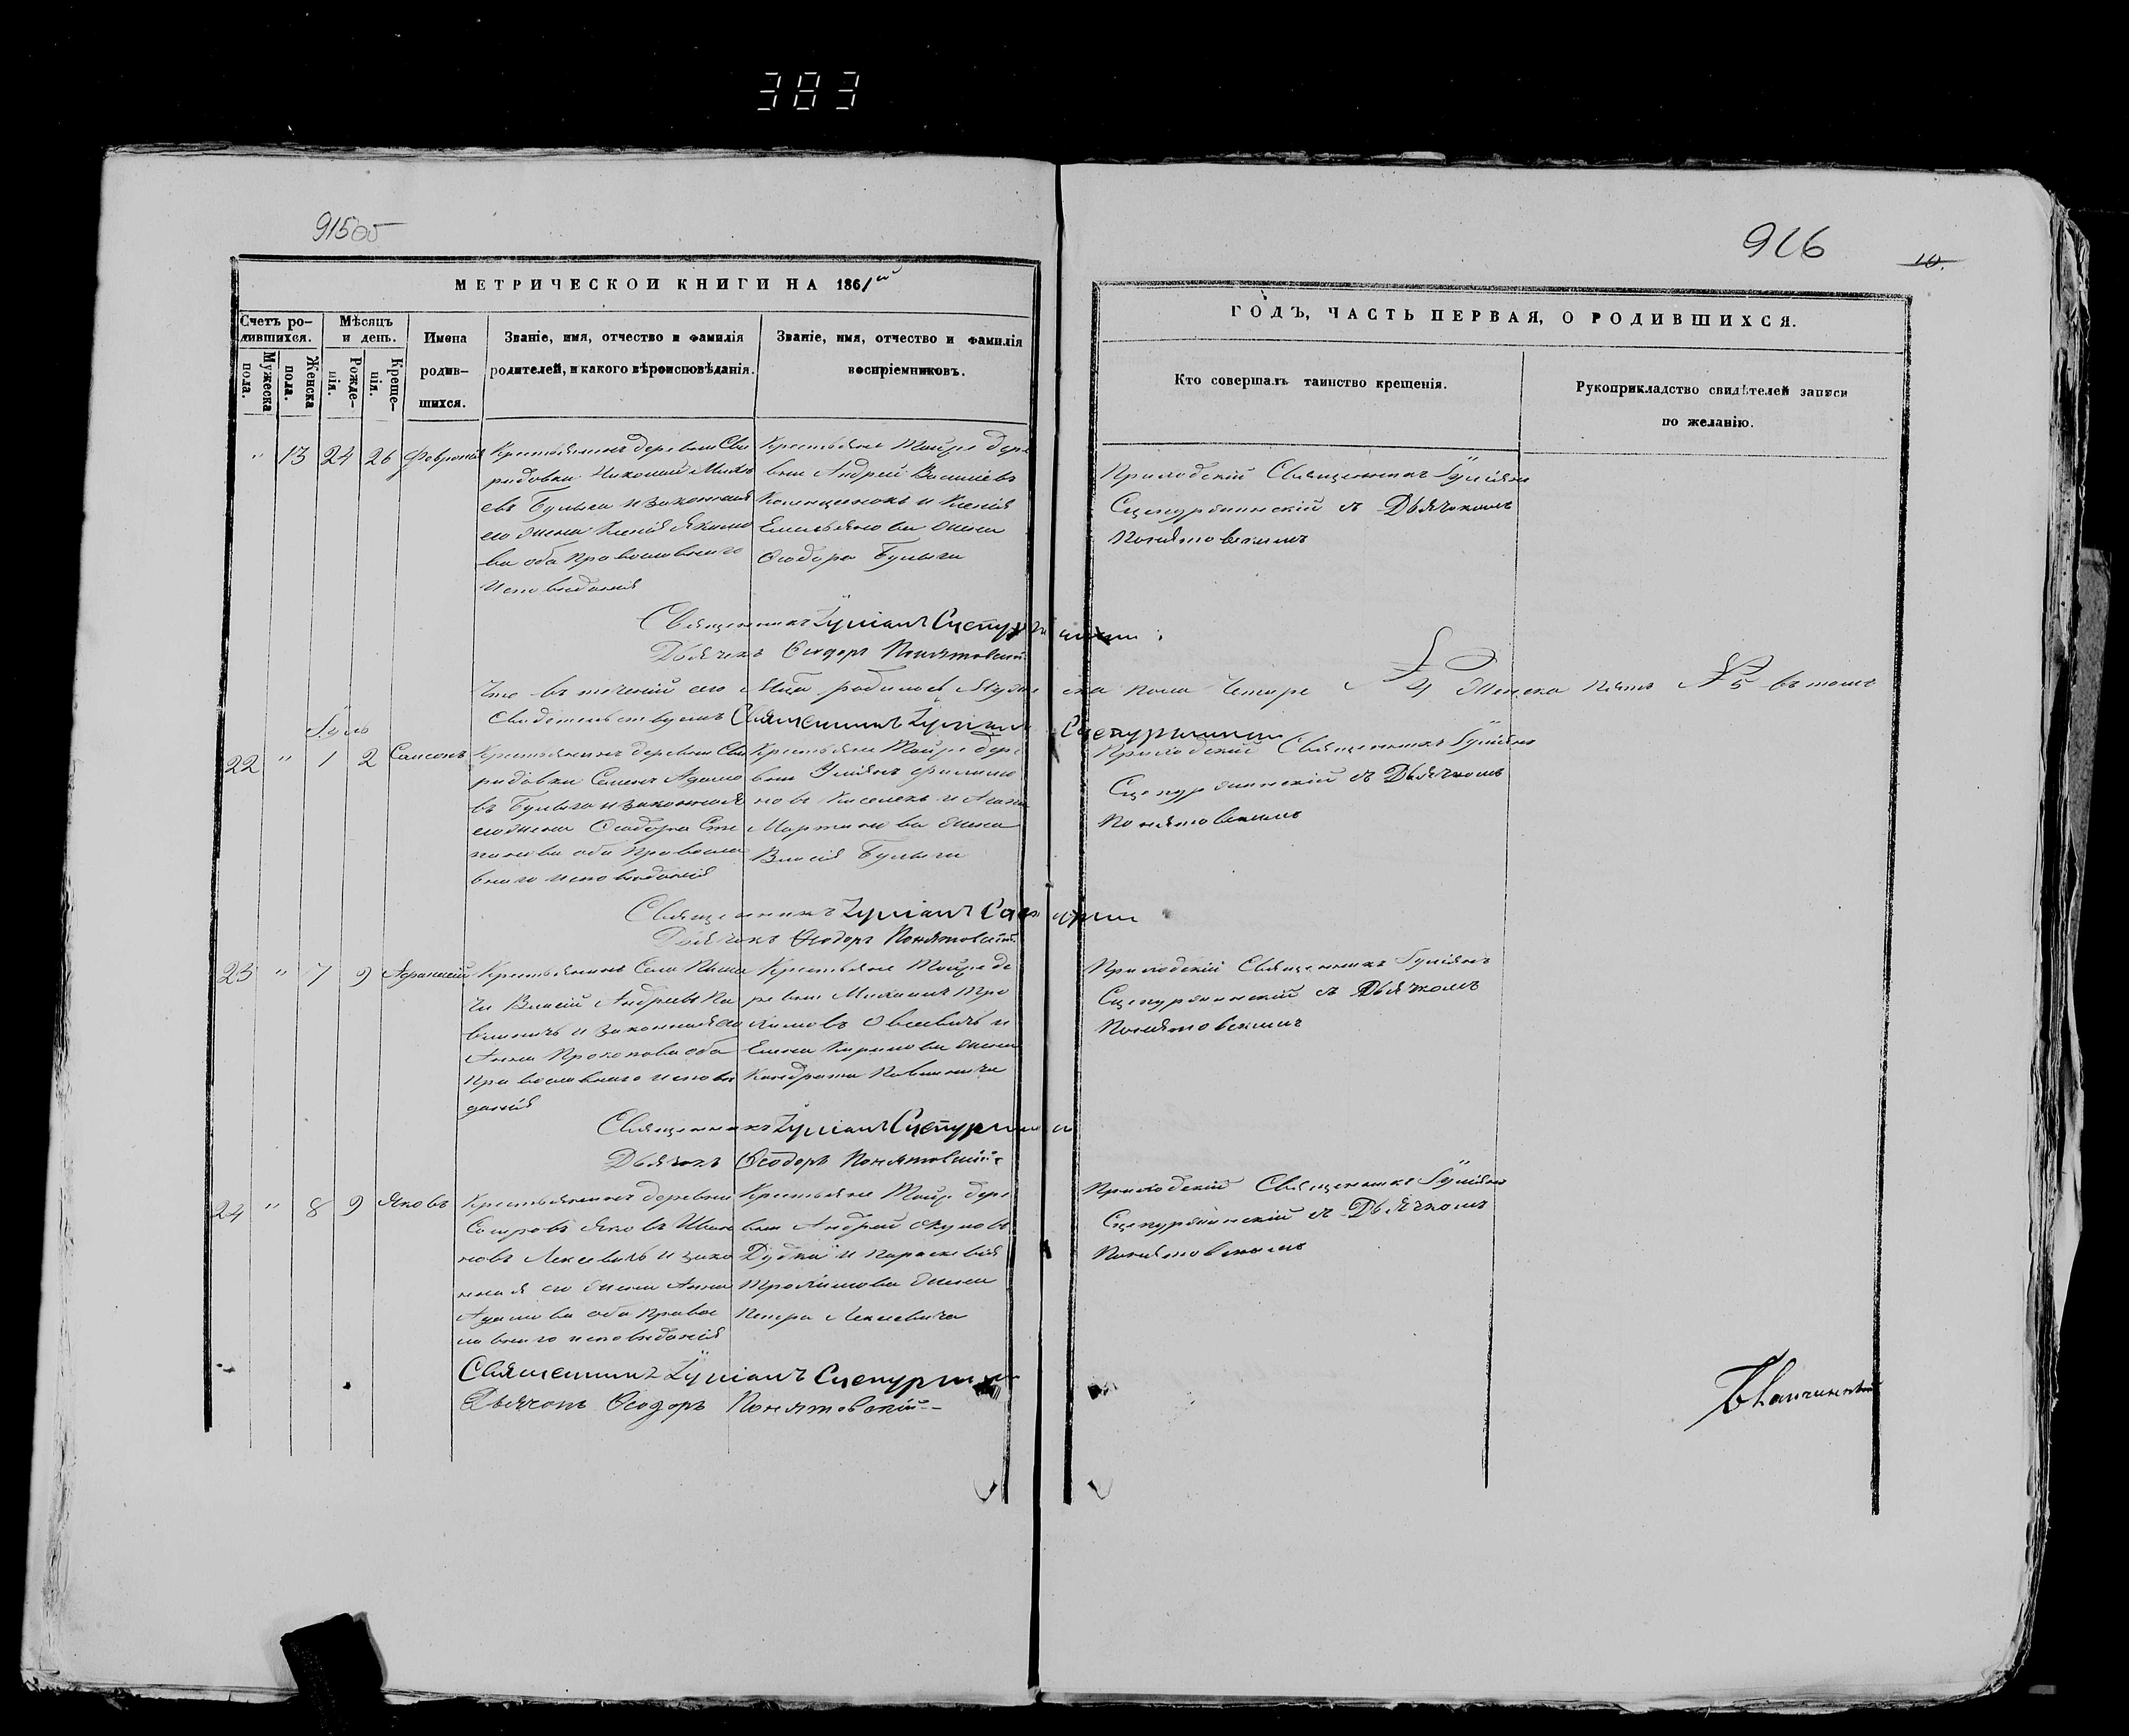 383
915об
916
10.
МЕТРИЧЕСКОЙ КНИГИ НА 1861й
Счетъ ро-
дившихся.
Мѣсяцъ
и день.
Мужеска
пола.
Женска
пола.
Рожде-
нія.
Креще-
нія.
Имена
родив-
шихся.
Званіе, имя, отчество и фамилія
родителей, и какого вѣроисповѣданія.
Званіе, имя, отчество и фамилія
воспріемниковъ.
ГОДЪ, ЧАСТЬ ПЕРВАЯ, О РОДИВШИХСЯ.
Кто совершалъ таинство крещенія.
Рукоприкладство свидѣтелей записи
по желанію.
" 13 24 26 Февронія
Крестьянинъ деревни Сви
ридовки Николай
Булыга и законная
его жена Ксенія Якимо
ва оба Православнаго
Исповѣданія
Крестьяне Тойже дере
вни Андрей Василіевъ
и Ксенія
Емельянова жена
Ѳеодора Булыги
Приходскій Священникъ Іуліянъ
Сцепуржинскій съ Дьячкомъ
Понятовскимъ
Священникъ Іуліанъ Сцепуржинскій
Дьячекъ Ѳеодоръ Понятовскій
Что въ теченіи сего м-ца родилось Мужеска пола Четыре № 4 Женска пять № 5 въ томъ
Свидетельствуемъ Священникъ Іуліанъ Сцепуржинскій
Іуль
22 " 1 2 Самсонъ
Крестьянинъ деревни Сви
ридовки Семенъ Адамо
въ Булыга и законная
его жена Ѳеодора Сте
панова оба Правосла
внаго исповѣданія
Крестьяне Тойже дере
вни Уліянъ Филимо
новъ Киселекъ и
Мартинова жена
Власія Булыги
Приходскій Священникъ Іуліянъ
Сцепуржинскій съ Дьячкомъ
Понятовскимъ
Священникъ Іуліанъ
Дьячекъ Ѳеодоръ Понятовскій
23 " 7 9
Крестьянинъ Села
Власій Андреевъ Па
влиничъ и законная его
Анна Прокопова оба
Православнаго исповѣ
данія
Крестьяне Тойже де
ревни Михаилъ Тро
химовъ Овсевичъ и
Елена Кирилова жена
Кондрата Павлинича
Приходскій Священникъ Іуліянъ
Сцепуржинскій съ Дьячкомъ
Понятовскимъ
Священникъ Іуліанъ Сцепуржинскій
Дьячекъ Ѳеодоръ Понятовскій
24 " 8 9 Яковъ
Крестьянинъ деревни
Яковъ Ива
новъ Лексевичъ и зако
нная его жена Анна
Адамова оба Правос
лавнаго исповѣданія
Крестьяне Тойже дере
вни Андрей Якуповъ
Дудка и Параскевія
Трохимова жена
Петра Лексевича
Приходскій Священникъ Іуліянъ
Сцепуржинскій съ Дьячкомъ
Понятовскимъ
Священникъ Іуліанъ Сцепуржинскій
Дьячокъ Ѳеодоръ Понятовскій